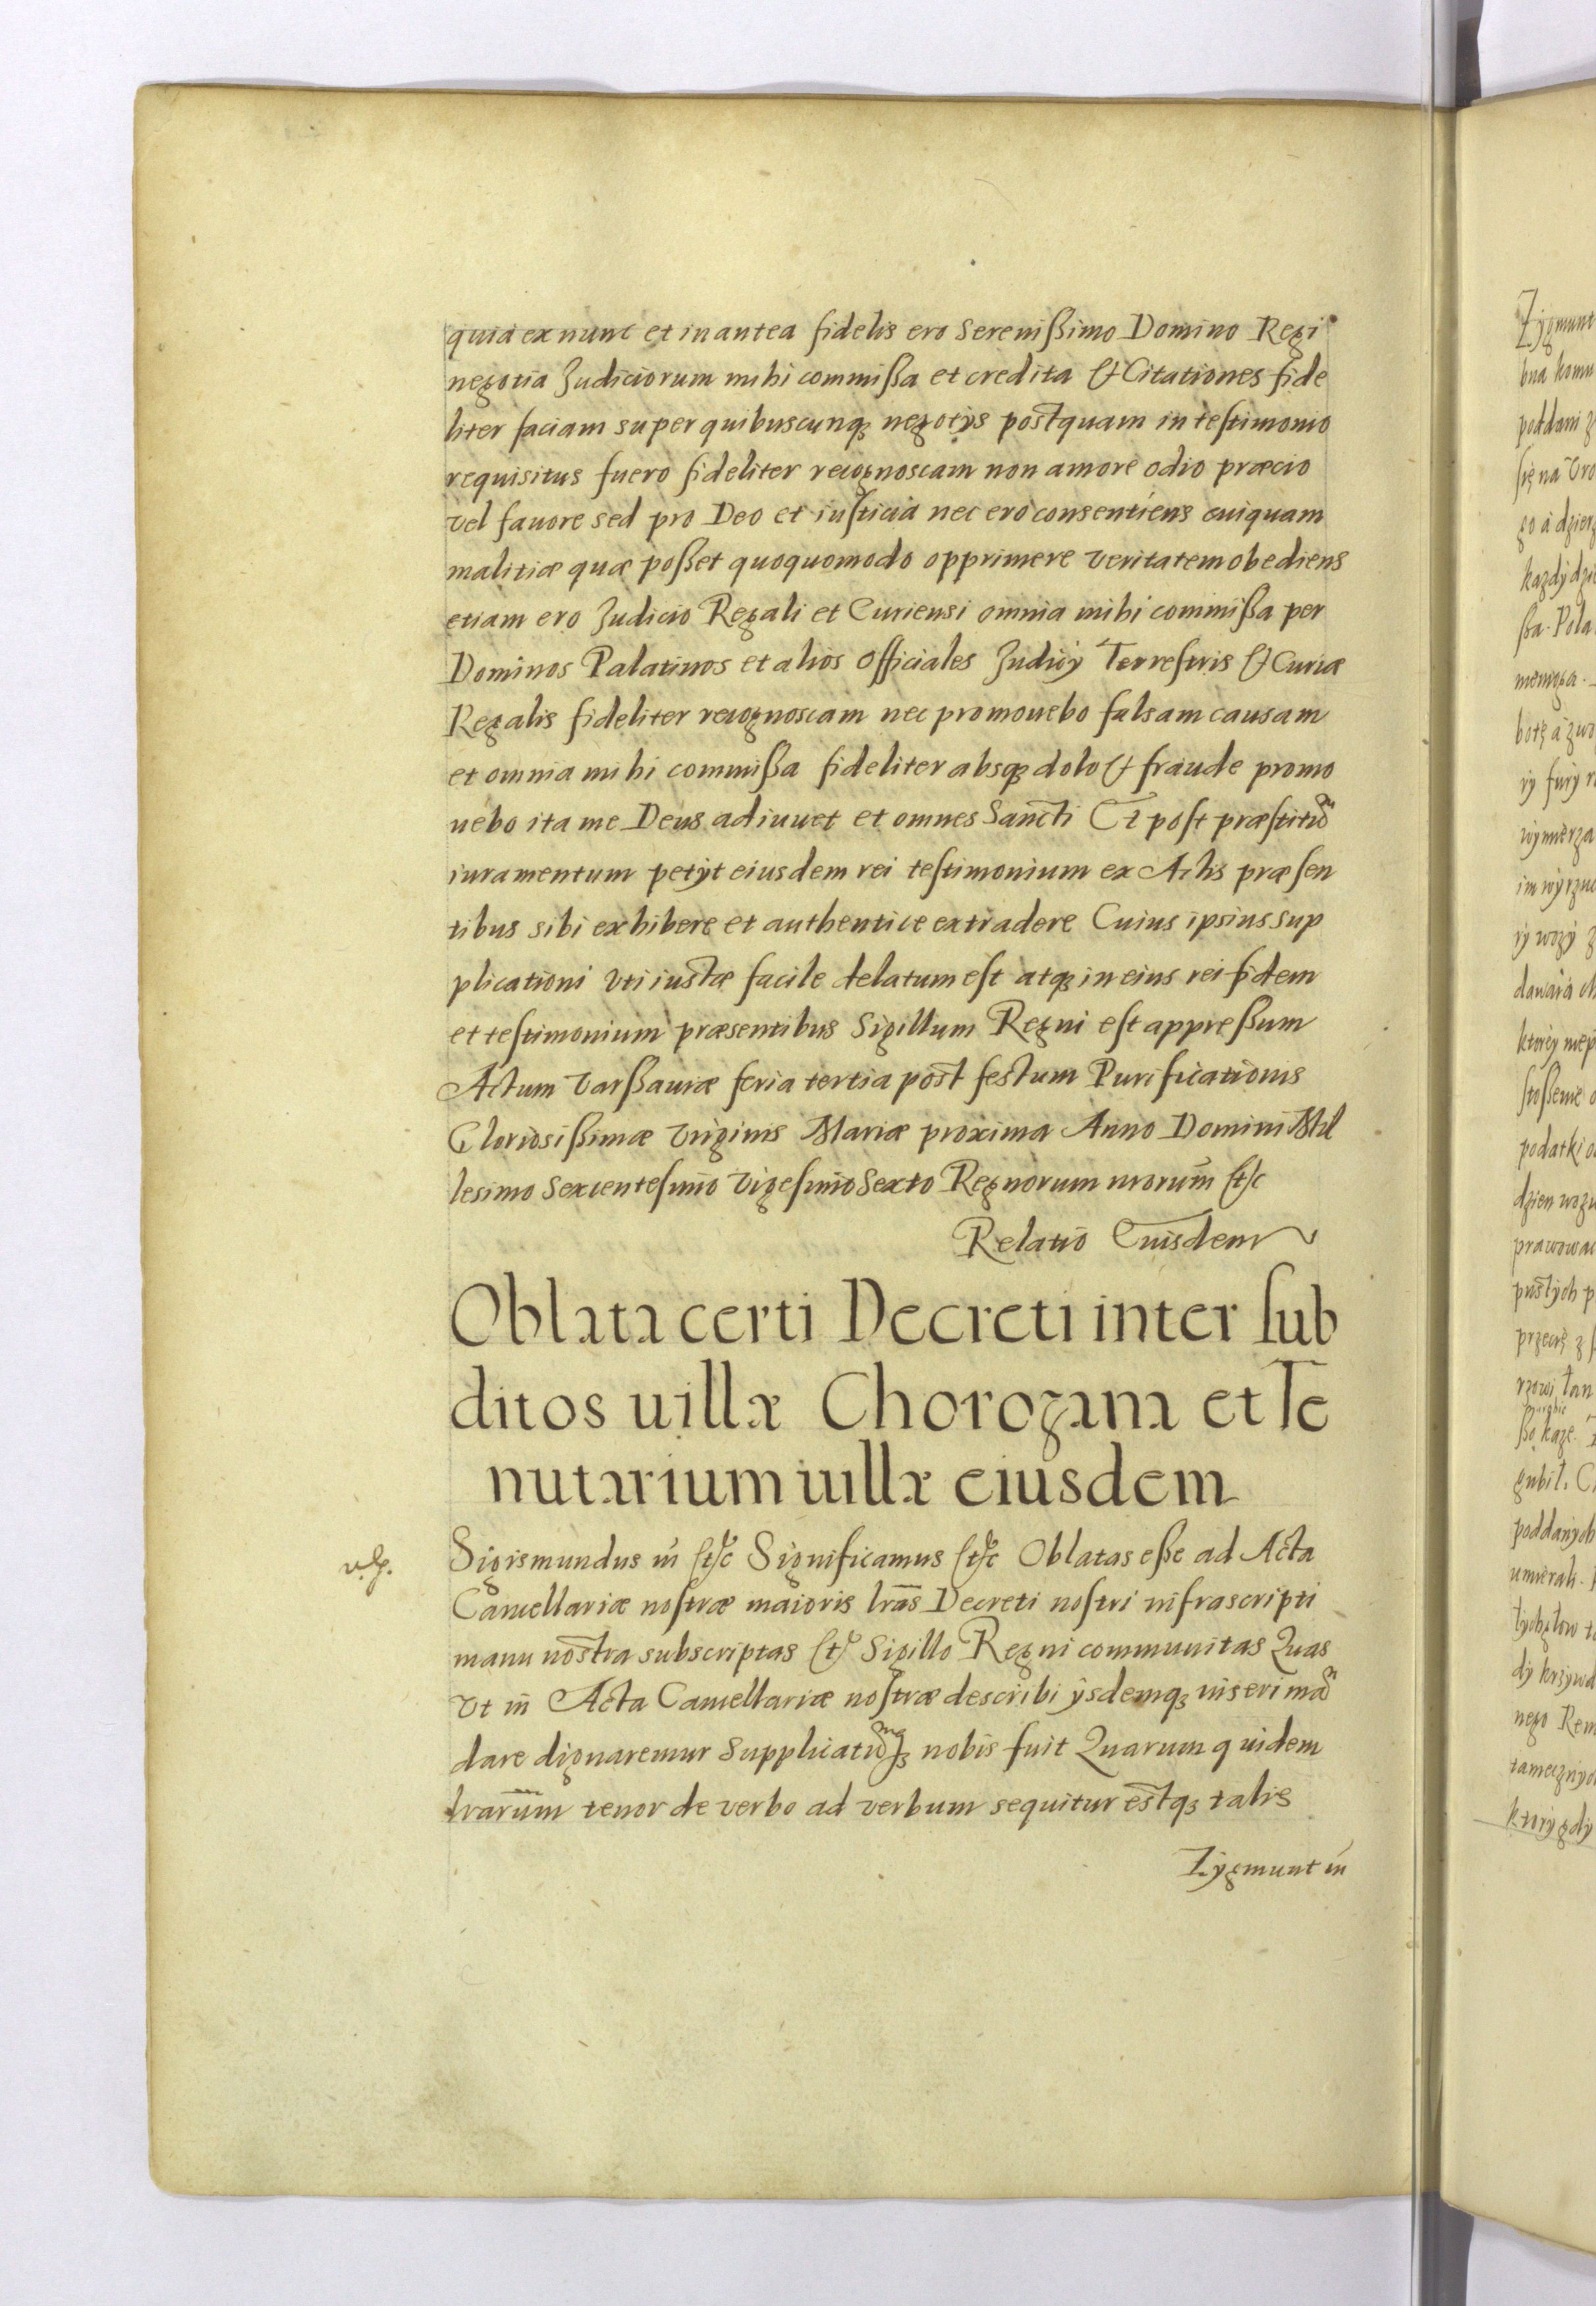 quia ex nunc et in antea fidelis ero Serenißimo Domino Regi
negotia Judiciorum mihi commißa et credita & Citationes fide
liter faciam super quibuscunq; negotÿs postquam in testimonio
requisitus fuero fideliter recognoscam non amore odio præcio
vel favore sed pro Deo et iusticia nec ero consentiens cuiquam
malitiæ quæ poßet quoquomodo opprimere veritatem obediens
etiam ero Judicio Regali et Curiensi omnia mihi commißa per
Dominos Palatinos et alios Officiales Judicÿ Terrestris & Curiæ
Regalis fideliter recognoscam nec promouebo falsam causam
et omnia mihi commißa fideliter absq; dolo & fraude promo
uebo ita me Deus adiuuet et omnes Sancti Et post præstitū
iuramentum petÿt eiusdem rei testimonium ex Actis præsen
tibus sibi exhibere et authentice extradere Cuius ipsius sup
plicationi vti iustæ facile delatum est atq; in eius rei fidem
et testimonium præsentibus Sigillum Regni est appreßum
Actum Varßauiæ feria tertia post festum Purificationis
Gloriosißimæ Virginis Mariæ proxima Anno Domini Mil
lesimo Sexcentesimo Vigesimo Sexto Regnorum nrorum̄ etc
Relatio Eiusdem
Oblata certi Decreti inter sub
ditos uillæ Chorogana et Te
nutarium uillæ eiusdem
Sigismundus iii etc Significamus etc Oblatas eße ad Acta
Cancellariæ nostræ maioris lrās Decreti nostri infrascripti
manu nostra subscriptas et Sigillo Regni communitas Quas
vt in Acta Cancellariæ nostræ describi ÿsdemq; inseri mā
dare dignaremur Supplicatūq; nobis fuit Quarum quidem
lrarūm tenor de verbo ad verbum sequitur estq; talis
Zygmunt iii